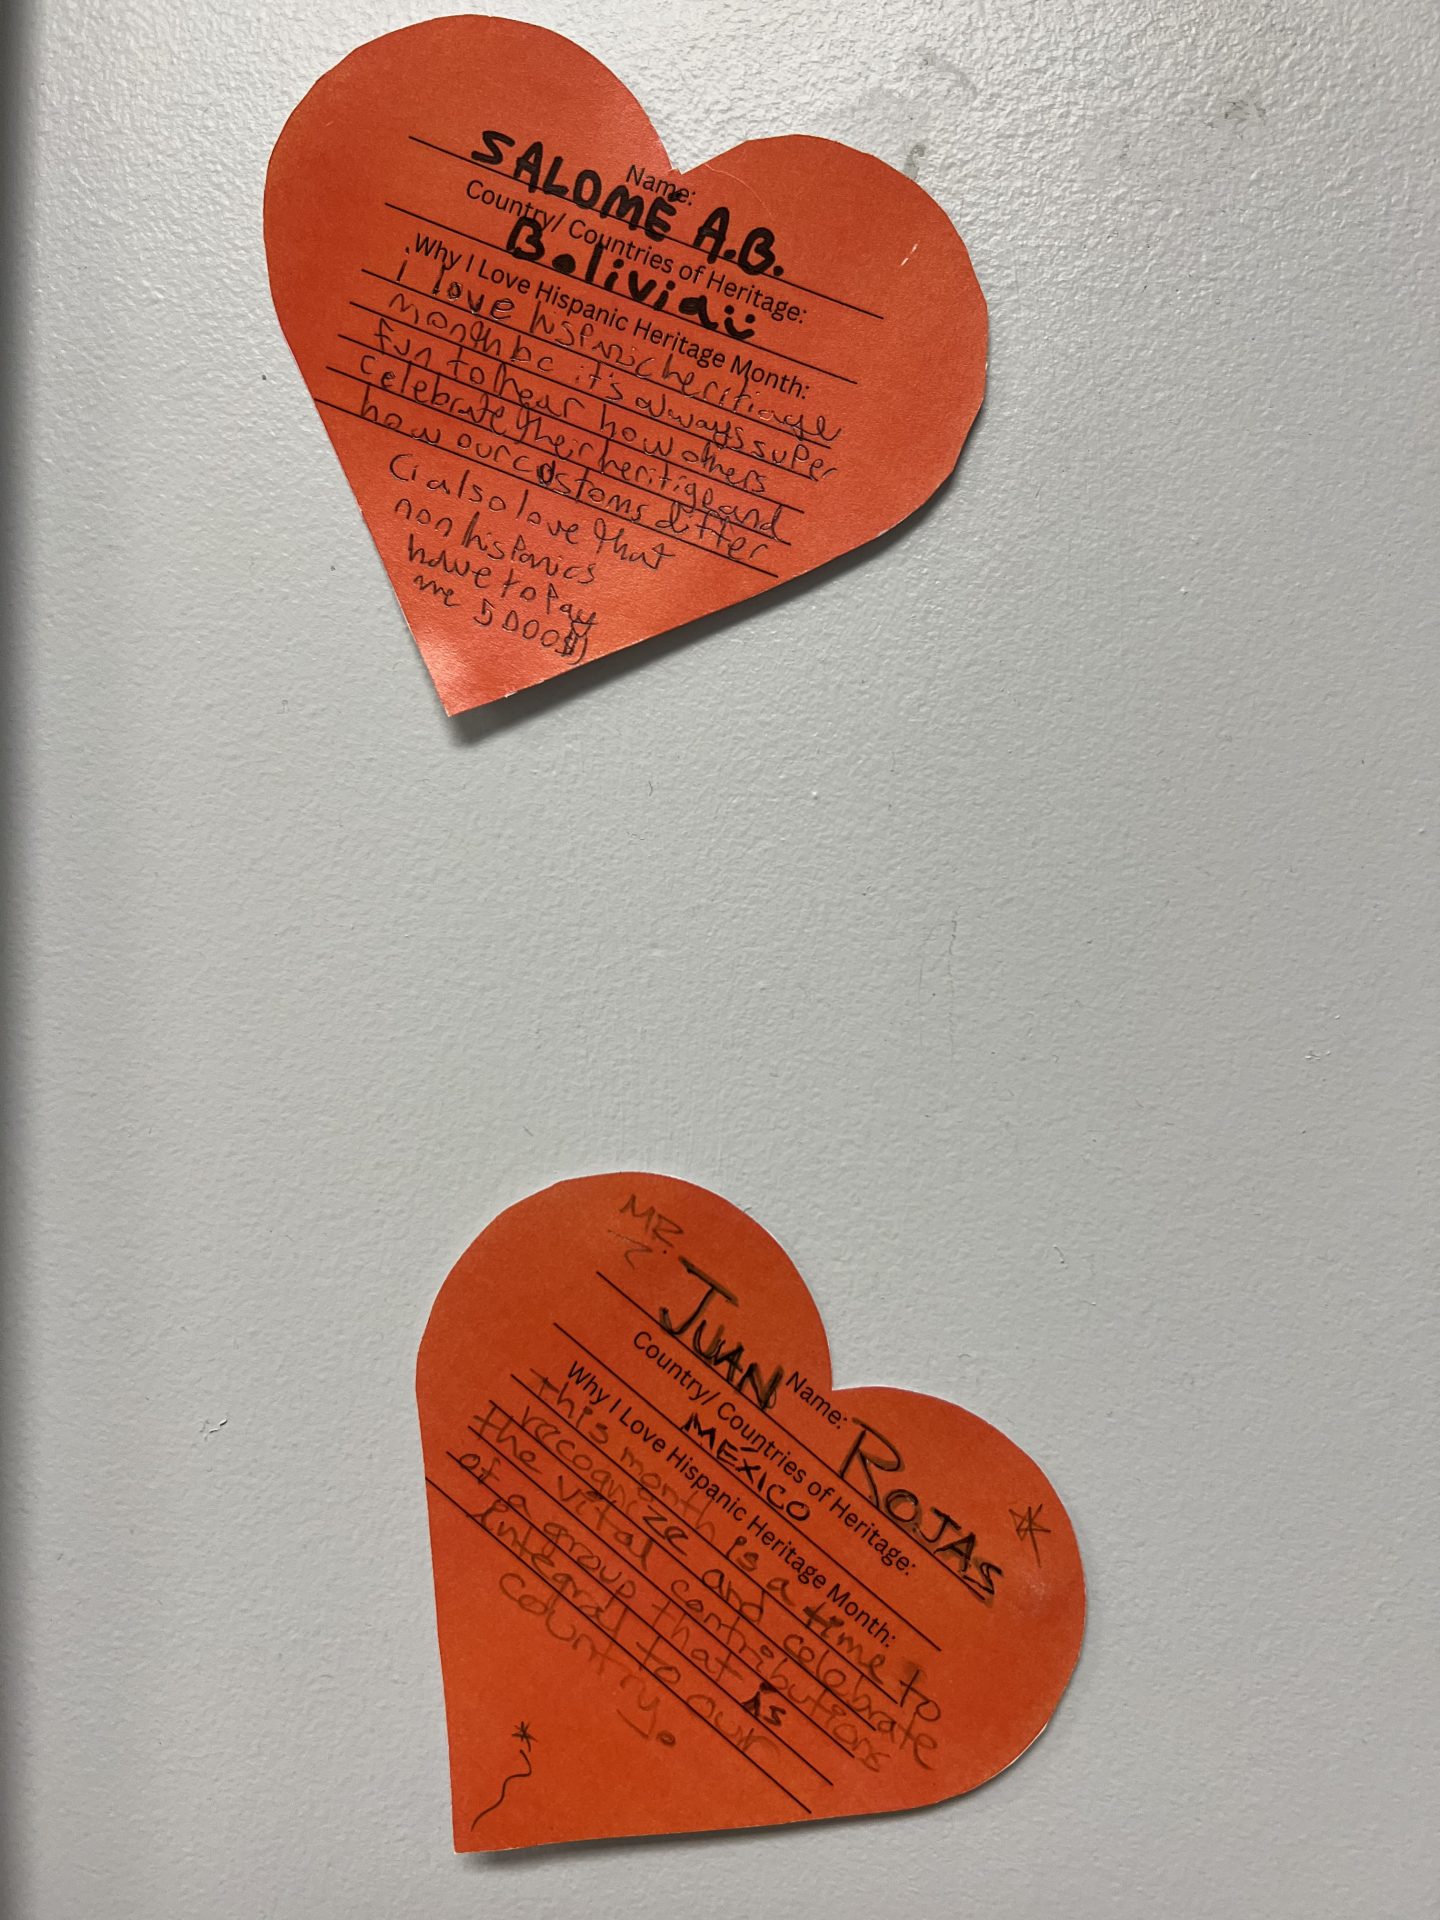 Name:
SALOMÉ A.B.
Country/ Countries of Heritage:
Bolivia
Why I Love Hispanic Heritage Month:
i love hispanic heritiage
month bc it's always super
fun to hear how others
celebrate their heritige and
how our customs differ
(i also love that
non hispanics
have to pay
me 5000$)
MR.
JUAN ROJAS
Name:
Country/ Countries of Heritage:
MÉXICO
Why I Love Hispanic Heritage Month:
this month is a time to
recognize and celebrate
the vital contributions
of a group that is
integral to our
country.